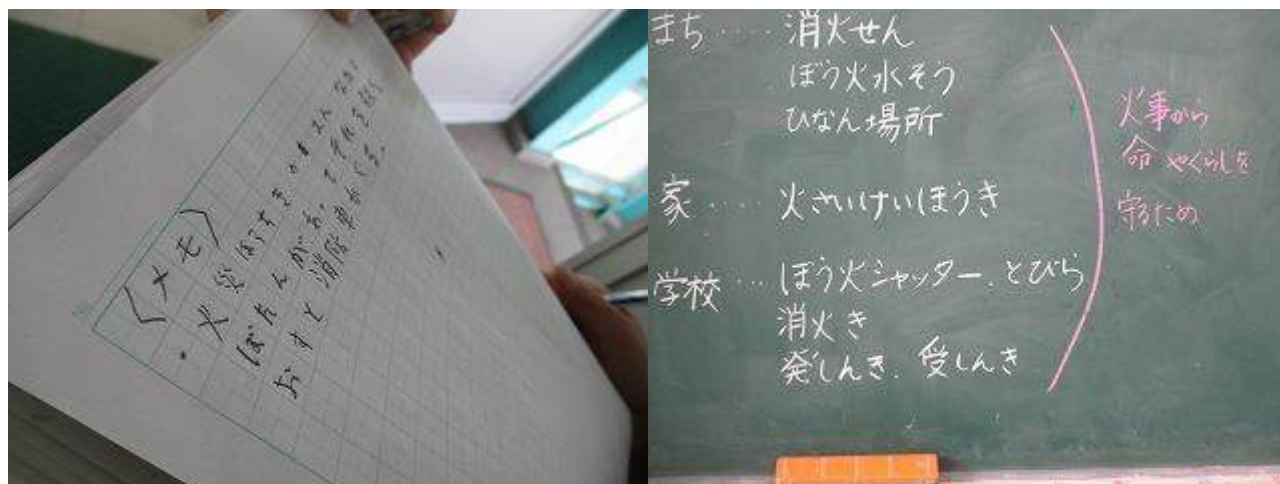 〈メモ〉
・火災ほう
ぼたんがある。
おすと消防車がくる。
まち‥‥消火せん
ぼう火水そう
ひなん場所
家‥‥火さいけいほうき
学校‥‥ぼう火シャッター、とびら
消火き
発しんき、受しんき
火事から
命やくらしを
守るため